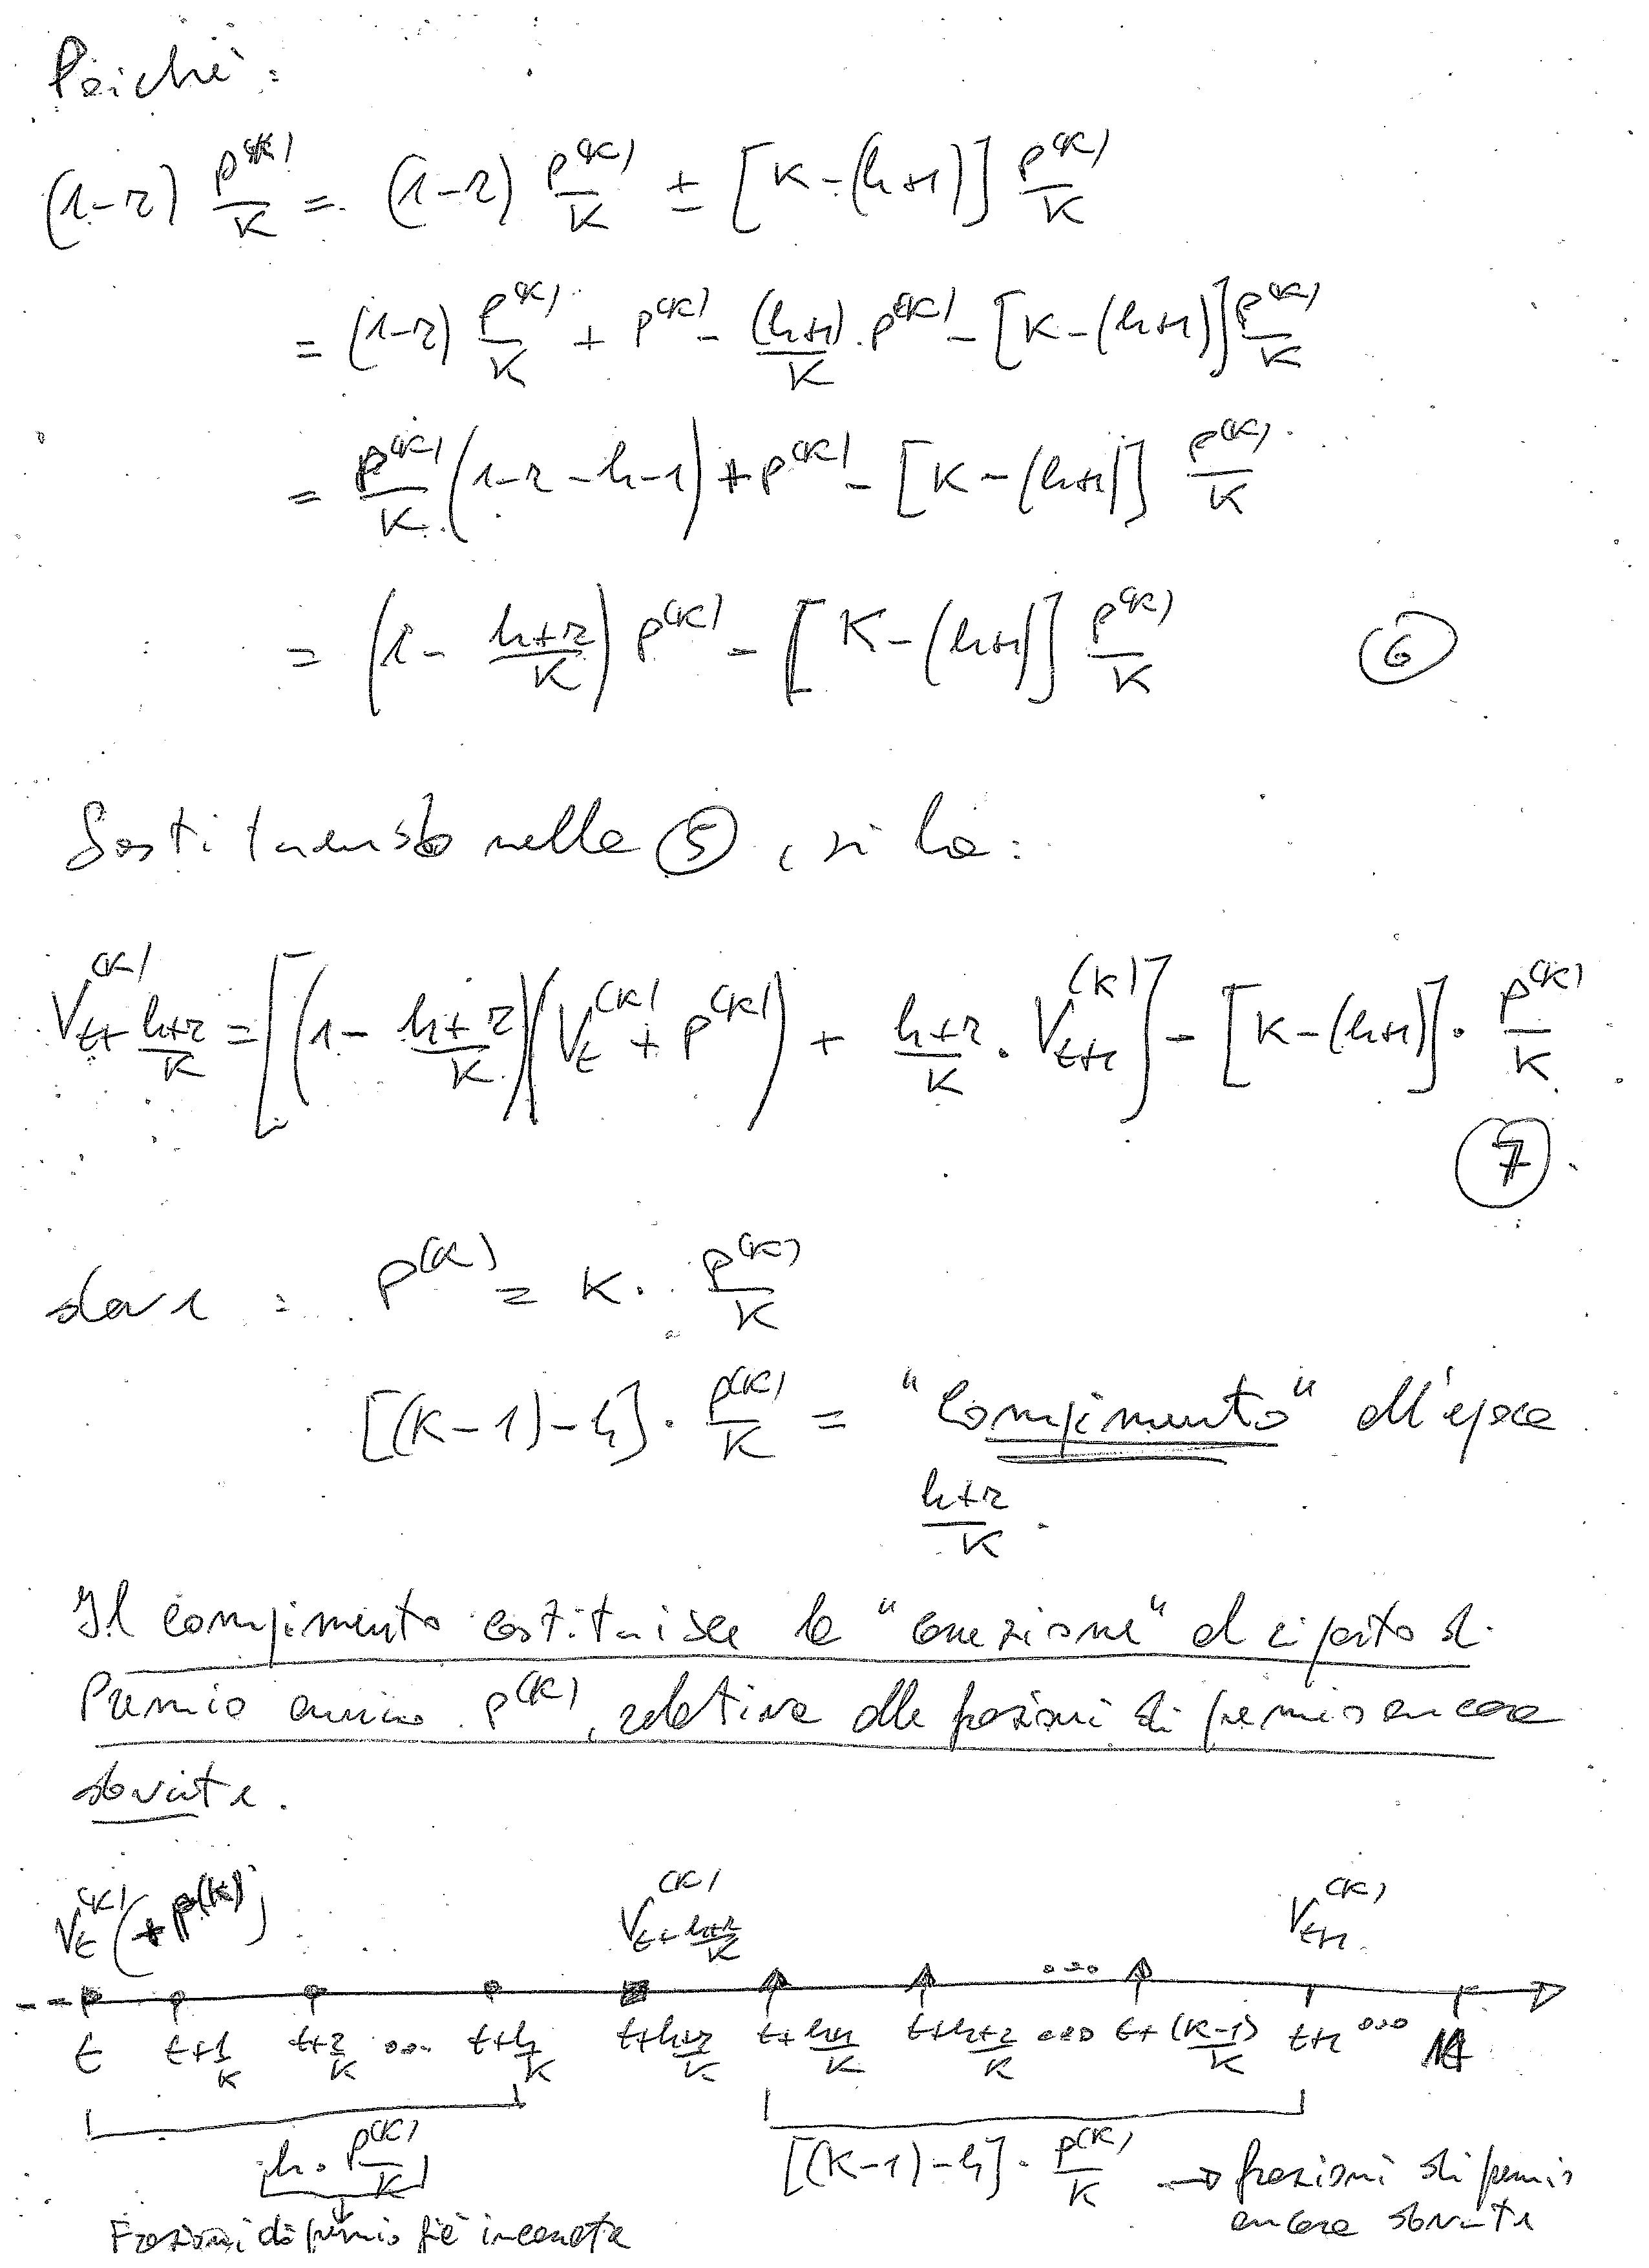 Poichè:
(1-r) P^(K)/K = (1-r) P^(K)/K ± [K-(h+1)] P^(K)/K
= (1-r) P^(K)/K + P^(K) - (h+1)/K · P^(K) - [K-(h+1)] P^(K)/K
= P^(K)/K (1-r-h-1) + P^(K) - [K-(h+1)] P^(K)/K
= (1 - (h+r)/K) P^(K) - [K-(h+1)] P^(K)/K ⑥
Sostituendo nella ⑤, si ha:
V^(K)_{t+(h+r)/K} = [(1 - (h+r)/K)(V_t^(K) + P^(K)) + (h+r)/K · V^(K)_{t+1}] - [K-(h+1)] · P^(K)/K
⑦
dove : P^(K) = K · P^(K)/K
[(K-1)-h] · P^(K)/K = "Compimento" all'epoca
(h+r)/K .
Il compimento costituisce la "correzione" al riporto di
Premio annuo P^(K), relativa alle frazioni di premio ancora
dovute.
V_t^(K) (+P^(K)) V^(K)_{t+(h+r)/K} V^(K)_{t+1}
t t+1/K t+2/K ... t+h/K t+(h+r)/K t+(h+1)/K t+(h+2)/K ... t+(K-1)/K t+1 ...
h · P^(K)/K [(K-1)-h] · P^(K)/K → frazioni di premio
ancora dovute
Frazioni di premio già incassate